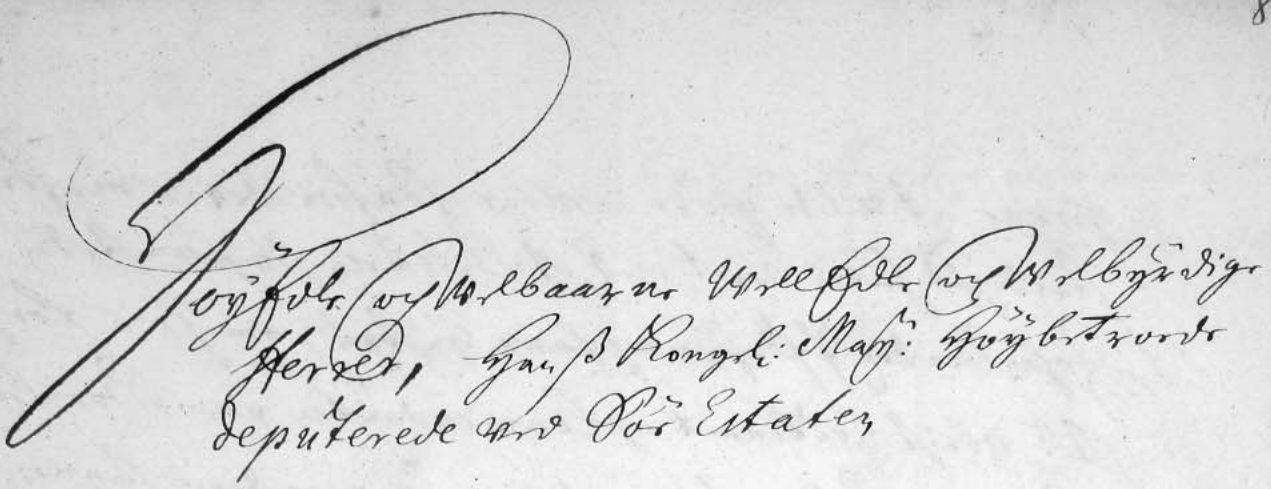 8
HöyEdle og Welbaarne WellEdle og Welbyrdige
Herrer, Hanß Kongel: May: Höybetroede
deputerede ved Söe Estaten